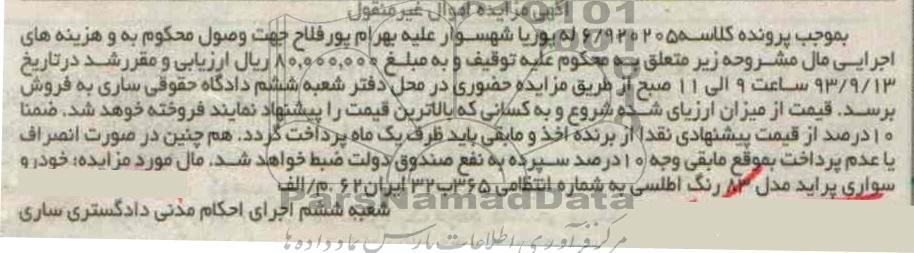 آگهی مزایده اموال غیرمنقول
بموجب پرونده کلاسه ۶/۹۲۰۲۰۵ له پوریا شهسوار علیه بهرام پورفلاح جهت وصول محکوم به و هزینه های
اجرایی مال مشروحه زیر متعلق به محکوم علیه توقیف و به مبلغ ۸۰,۰۰۰,۰۰۰ ریال ارزیابی و مقرر شد در تاریخ
۹۳/۹/۱۳ ساعت ۹ الی ۱۱ صبح از طریق مزایده حضوری در محل دفتر شعبه ششم دادگاه حقوقی ساری به فروش
برسد. قیمت از میزان ارزیای شده شروع و به کسانی که بالاترین قیمت را پیشنهاد نمایند فروخته خوهد شد. ضمنا
۱۰درصد از قیمت پیشنهادی نقدا از برنده اخذ و مابقی باید ظرف یک ماه پرداخت گردد. هم چنین در صورت انصراف
یا عدم پرداخت بموقع مابقی وجه ۱۰درصد سپرده به نفع صندوق دولت ضبط خواهد شد. مال مورد مزایده: خودرو
سواری پراید مدل ۸۳ رنگ اطلسی به شماره انتظامی ۳۶۵ب۳۲ ایران۶۲ .م/الف
ParsNamadData
شعبه ششم اجرای احکام مدنی دادگستری ساری
مرکز فرآوری اطلاعات پارس نماد داده ها